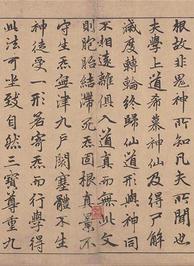 根故非鬼神所知凡夫所聞也
夫學上道希慕神仙及得尸解
滅度轉輪終歸仙道形與神同
不相遠離俱入道真而無此文
則胞胎結滯死炁固根真景不
守生炁無津九戶閼塞體不生
神徒受一形若寄炁而行學得
此法可坐致自然三寶尊重九